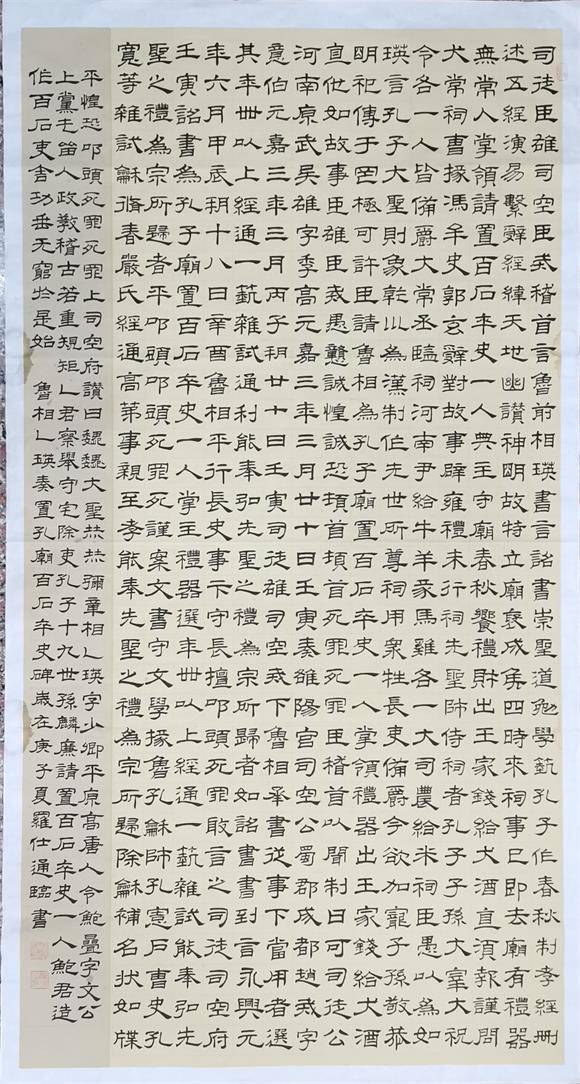 司徒臣雄司空臣戒稽首言魯前相瑛書言詔書崇聖道勉學藝孔子作春秋制孝經刪
述五經演易繫辭經緯天地幽讚神明故特立廟褒成侯四時來祠事已即去廟有禮器
無常人掌領請置百石卒史一人典主守廟春秋饗禮財出王家錢給犬酒直須報謹問
大常祠曹掾馮牟史郭玄辭對故事辟雍禮未行祠先聖師侍祠者孔子子孫大宰大祝
令各一人皆備爵大常丞臨祠河南尹給牛羊豕馬雞各一大司農給米祠臣愚以為如
瑛言孔子大聖則象乾巛為漢制作先世所尊祠用眾牲長吏備爵今欲加寵子孫敬恭
明祀傳于罔極可許臣請魯相為孔子廟置百石卒史一人掌領禮器出王家錢給犬酒
直他如故事臣雄臣戒愚戇誠惶誠恐頓首頓首死罪死罪臣稽首以聞制曰可司徒公
河南原武吳雄字季高元嘉三年三月廿十日壬寅奏雒陽宮司空公蜀郡成都趙戒字
意伯元嘉三年三月丙子朔廿十日壬寅司徒雄司空戒下魯相承書從事下當用者選
其年卌以上經通一藝雜試通利能奉弘先聖之禮為宗所歸者如詔書書到言永興元
年六月甲辰朔十八日辛酉魯相平行長史事卞守長擅叩頭死罪敢言之司徒司空府
壬寅詔書為孔子廟置百石卒史一人掌主禮器選年卌以上經通一藝雜試能奉弘先
聖之禮為宗所歸者平叩頭叩頭死罪死罪謹案文書守文學掾魯孔龢師孔憲戶曹史孔
寬等雜試龢脩春嚴氏經通高第事親至孝能奉先聖之禮為宗所歸除龢補名狀如牒
平惶恐叩頭死罪死罪上司空府讚曰巍巍大聖赫赫彌章相乙瑛字少卿平原高唐人令鮑疊字文公
上黨屯留人政教稽古若重規矩乙君察舉守宅除吏孔子十九世孫麟廉請置百石卒史一人鮑君造
作百石吏舍功垂无窮於是始 魯相乙瑛奏置孔廟百石卒史碑 歲在庚子夏羅仕通臨書